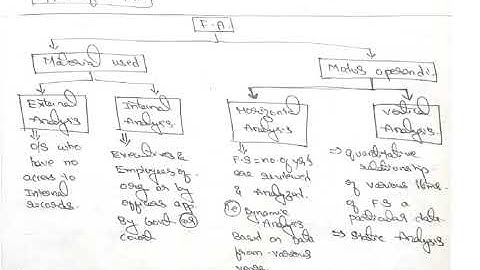 F.A.
Material used
Motus operandi.
External
Analysis
Internal
Analysis.
Horizontal
Analysis
Vertical
Analysis.
O/S who
have no
access to
Internal
records.
Executives &
Employees of
orgn or by
officers
By Govt (or)
court
F.S = no. of yrs
are reviewed
& Analyzed.
i.e Dynamic
Analysis
Based on data
from various
years
⇒ quantitative
relationship
of various items
of F.S a
particular date.
⇒ Static Analysis